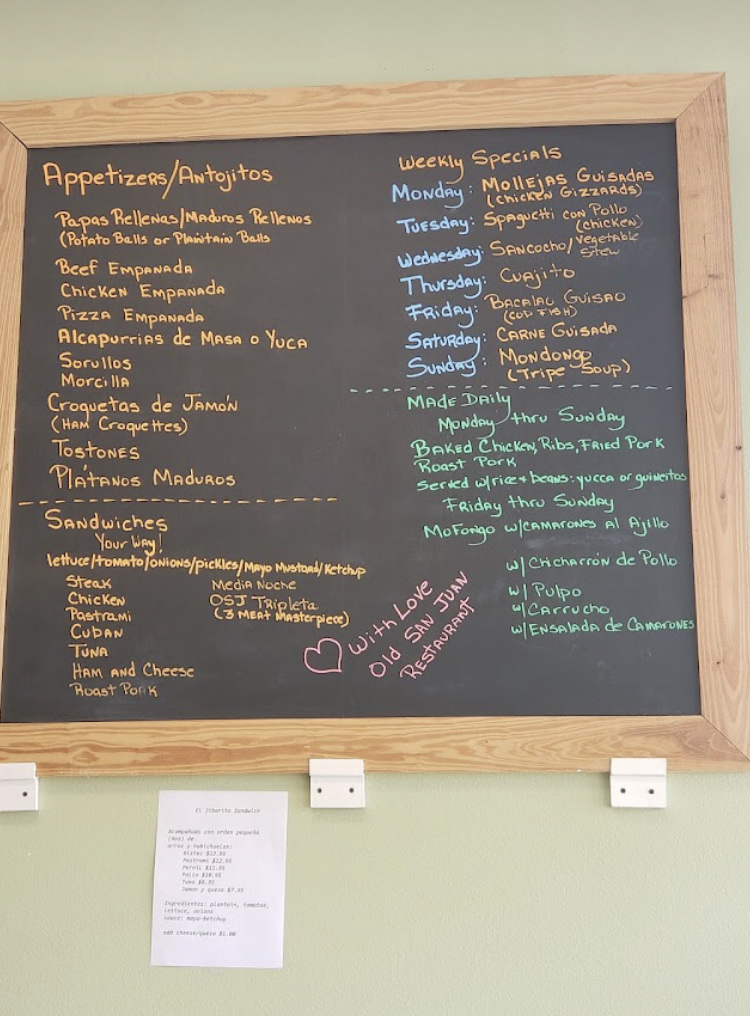 Appetizers/Antojitos
Papas Rellenas/Maduros Rellenos
(Potato Balls or Plaintain Balls
Beef Empanada
Chicken Empanada
Pizza Empanada
Alcapurrias de Masa o Yuca
Sorullos
Morcilla
Croquetas de Jamón
(Ham Croquettes)
Tostones
Plátanos Maduros
Sandwiches
Your Way!
lettuce/tomato/onions/pickles/Mayo Mustard/Ketchup
Steak
Chicken
Pastrami
Cuban
Tuna
Ham and Cheese
Roast Pork
Media Noche
OSJ Tripleta
(3 Meat Masterpiece)
Weekly Specials
Monday: Mollejas Guisadas
(Chicken Gizzards)
Tuesday: Spaguetti con Pollo
(chicken)
Wednesday: Sancocho/Vegetable
Stew
Thursday: Cuajito
Friday: Bacalao Guisao
(Cod Fish)
Saturday: Carne Guisada
Sunday: Mondongo
(Tripe Soup)
Made Daily
Monday thru Sunday
Baked Chicken, Ribs, Fried Pork
Roast Pork
Served w/rice + beans: yucca or guineitos
Friday thru Sunday
Mofongo w/camarones al Ajillo
w/Chicharrón de Pollo
w/Pulpo
w/Carrucho
w/Ensalada de Camarones
With Love
Old San Juan
Restaurant
El Jibarito Sandwich
Acompañado con orden pequeña
de
arroz y habichuelas:
Pastrami
Pernil
Pollo
Tuna
Jamon y queso $7.95
Ingredientes: plantain, tomatoe,
lettuce, onions
sauce: mayo-ketchup
add cheese/queso $1.00